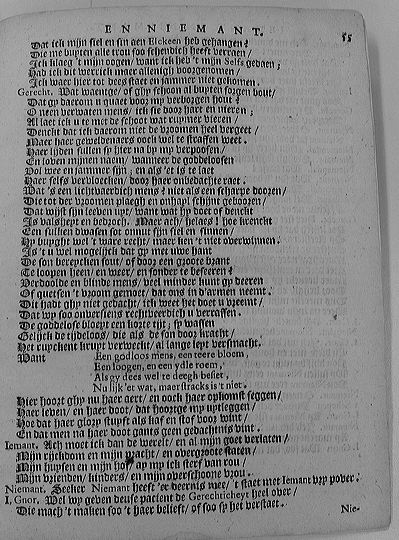 EN NIEMANT. 55
Dat ick mijn siel en sin aen Elckeen heb gehangen?
Die me buyten alle trou soo schendich heeft verraen /
Ick klaeg 't mijn oogen / want ick heb 't mijn Selfs gedaen;
Had ick dit werrick maer allenigh voorgenomen /
Ick waer hier tot dees staet en jammer niet gekomen.
Gerecht. Wat waentge / of ghy schoon al buyten sorgen hout /
Dat gy daerom u quaet voor my verborgen hout?
O neen verwaten mens / ick sie door hart en nieren;
Al laet ick u te met de schoot wat ruymer vieren /
Denckt dat ick daerom niet de vroomen heel vergeet /
Maer haer gequelbenaers oock wel te straffen weet.
Haer lijden sullen sy hier na by my verpoosen /
En loven mijnen naem / wanneer de goddeloosen
Vol wee en jammer sijn; en als 'et is te laet
Haer selfs vervloecken / door haer onbedachte raet.
Wat 's een lichtvaerdich mens? niet als een scharpe dooren /
Die tot der vroomen plaegh en onhapl schijnt gebooren /
Dat wijst sijn leeven uyt / want wat hy doet of denckt
Is valsheyt en bedroch. Maer ach / helaes! hoe krenckt
Een sulken dwasen sot onnut sijn siel en sinnen /
Hy buyght wel 't ware recht / maer ken 't niet overwinnen.
Is 't u wel mogelijck dat gy met uwe hant
De son bereycken sout / of door een groote brant
Te loopen heen / en weer / en sonder te beseeren?
Verdoolde en blinde mens / veel minder kunt gy deeren
Of quetsen 't vroom gemoet / dat ons in d'armen neemt.
Dit hadt ghy niet gedacht / ick weet het doet u vreemt /
Dat wy soo onversiens rechtveerdich u verrassen.
De goddelose bloeyt een korte tijt; sy wassen
Gelijck de tijdeloos / die als de son door kracht /
Het ruychent kruyt verweckt / al lange leyt versmacht.
Want Een godloos mens, een teere bloem,
Een loogen, en een ydle roem,
Als gy dees wel te deegh besiet,
Nu lijk 'et wat, maer stracks is 't niet.
Hier hoort ghy nu haer aert / en oock haer opkomst seggen /
Haer leven / en haer doot / dat hoortge my uytleggen /
Hoe dat haer glory stuyft als kaf en stof voor wint /
En dat men na haer doot gants geen gedachtnis vint.
Iemant. Ach moet ick dan de werelt / en al mijn goet verlaten /
Mijn rijckdom en mijn pracht / en overgroote staten /
Mijn huysen en mijn hof ay my ick sterf van rou /
Mijn vrienden / kinders / en mijn overschoone vrou.
Niemant. Seeker Niemant heeft 'er deernis mee / 't staet met Iemant vry pover.
I, Gnor. Wel wy geven deuse patient de Gerechticheyt heel over /
Die mach 't maken soo 't haer belieft / of soo sy het verstaet.
Nie-